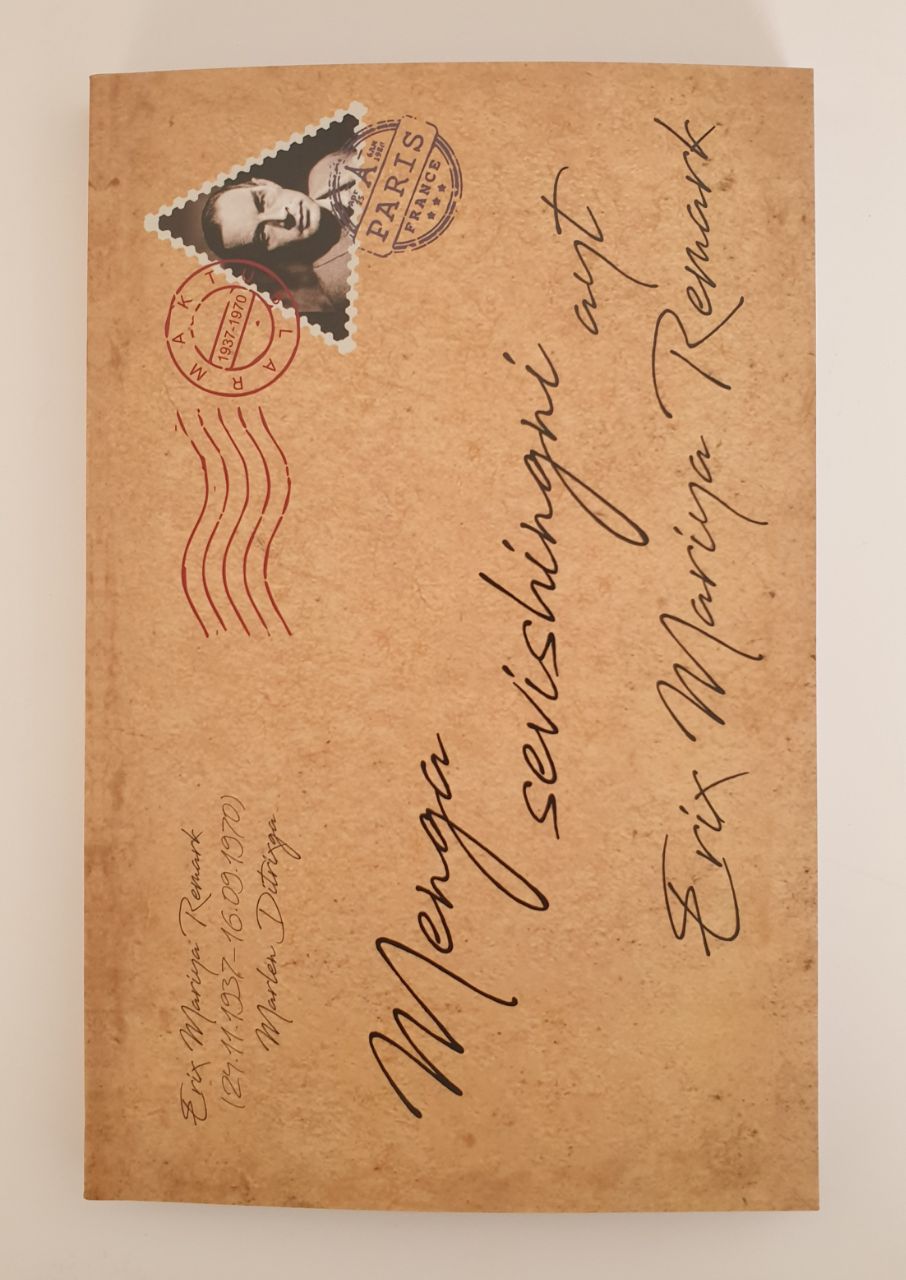 Erix Mariya Remark
(24.11.1937–16.09.1970)
Marlen Ditrixga
MAKTUBLAR
1937-1970
PARIS
FRANCE
Menga
sevishingni ayt
Erix Mariya Remark